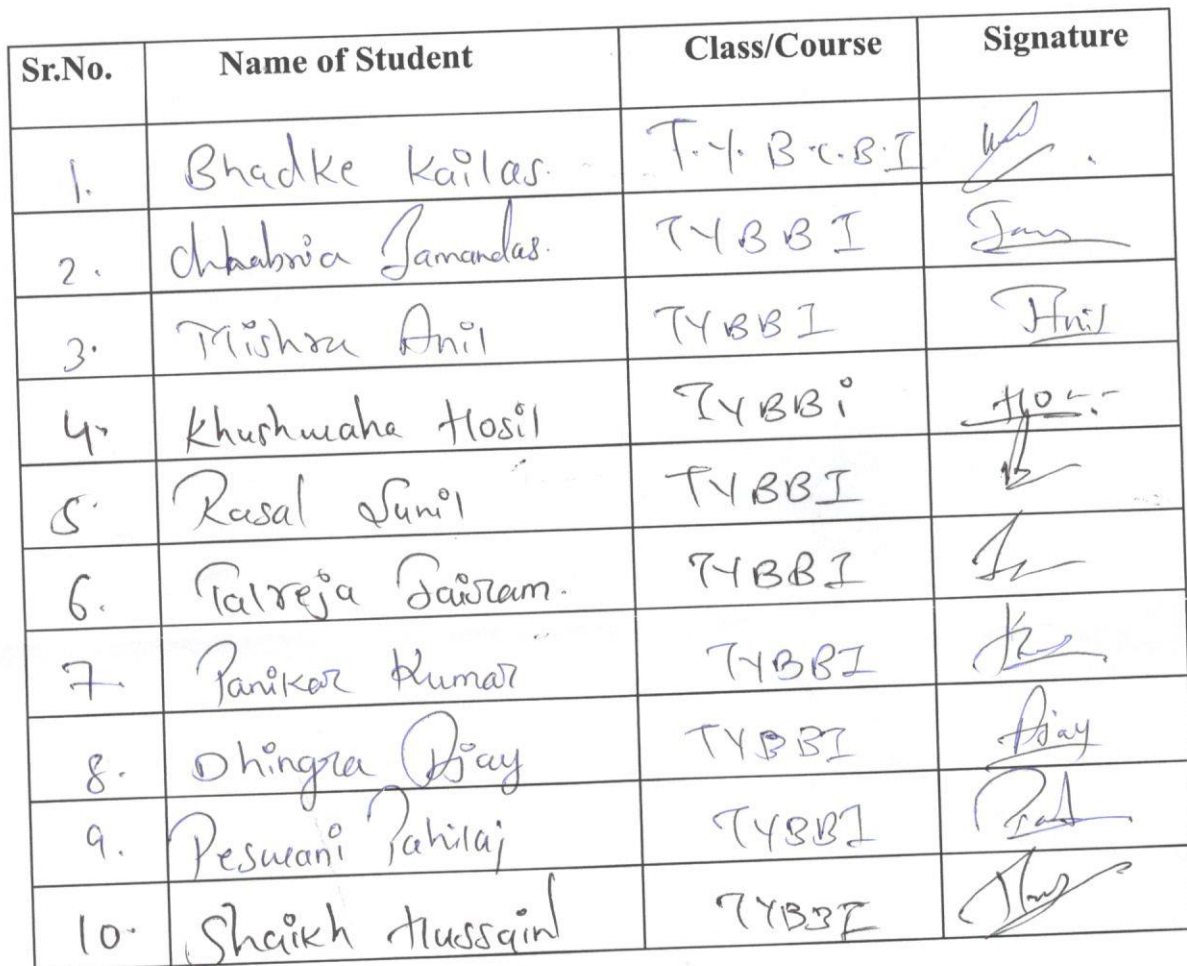 Sr.No. Name of Student Class/Course Signature
1. Bhadke Kailas. T.Y. B.C.B.I
2. Chhabria Jamandas. TYBBI
3. Mishra Anil TYBBI Anil
4. Khushwaha Hosil TYBBi
5. Rasal Sunil TYBBI
6. Talreja Jairam. TYBBI
7. Panikar Kumar TYBBI
8. Dhingra Ajay TYBBI Ajay
9. Peswani Pahilaj TYBBI
10. Shaikh Hussain TYBBI